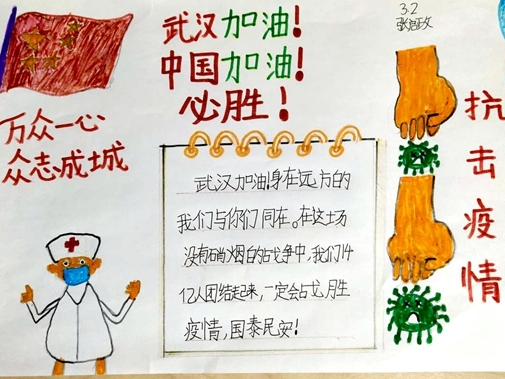 武汉加油!
中国加油!
必胜!
3.2
万众一心
众志成城
武汉加油!身在远方的
我们与你们同在。在这场
没有硝烟的战争中,我们14
亿人团结起来,一定会战胜
疫情,国泰民安!
抗击疫情